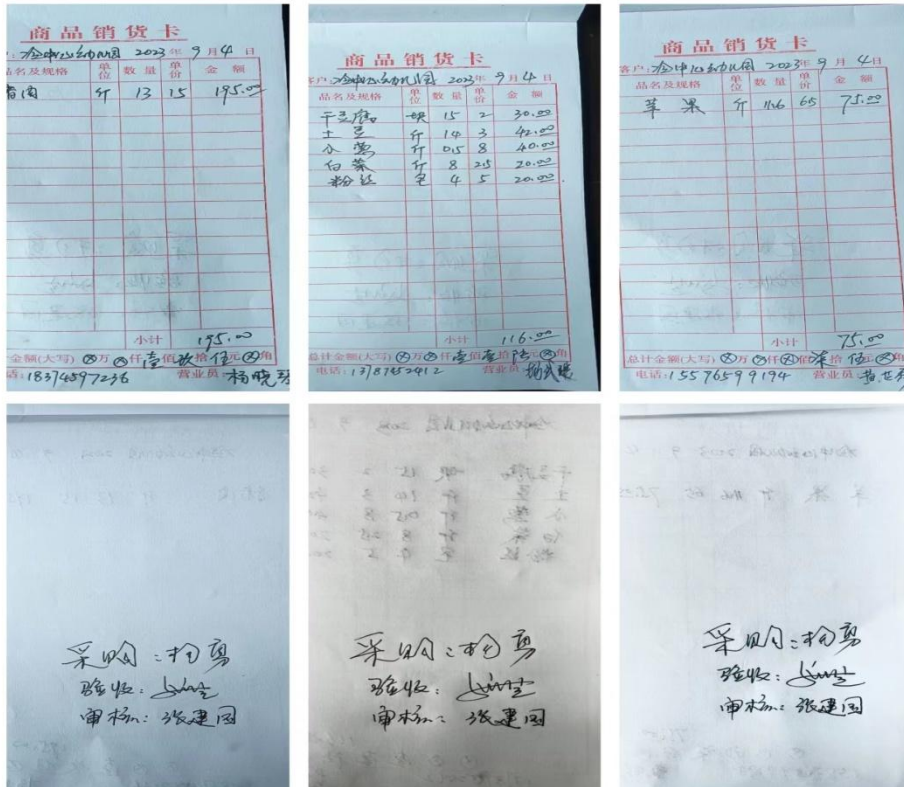 商品销货卡
2023年9月4日
品名及规格 单位 数量 单价 金额
斤 13 15 195.00
小计 195.00
金额(大写) ⊗万⊗仟壹佰玖拾伍元⊗角
话:18374597236 营业员 杨晓
商品销货卡
客户: 中心幼儿园 2023年9月4日
品名及规格 单位 数量 单价 金额
干豆腐 块 15 2 30.00
土豆 斤 14 3 42.00
小葱 斤 0.5 8 40.00
白菜 斤 8 2.5 20.00
粉丝 包 4 5 20.00
小计 116.00
总计金额(大写) ⊗万⊗仟壹佰壹拾陆元⊗角
电话:13787452412 营业员
商品销货卡
客户: 中心幼儿园 2023年9月4日
品名及规格 单位 数量 单价 金额
苹果 斤 11.6 6.5 75.00
小计 75.00
总计金额(大写) ⊗万⊗仟⊗佰柒拾伍元⊗角
电话:15576599194 营业员
采购:杨勇
验收:
审核:张建国
采购:杨勇
验收:
审核:张建国
采购:杨勇
验收:
审核:张建国